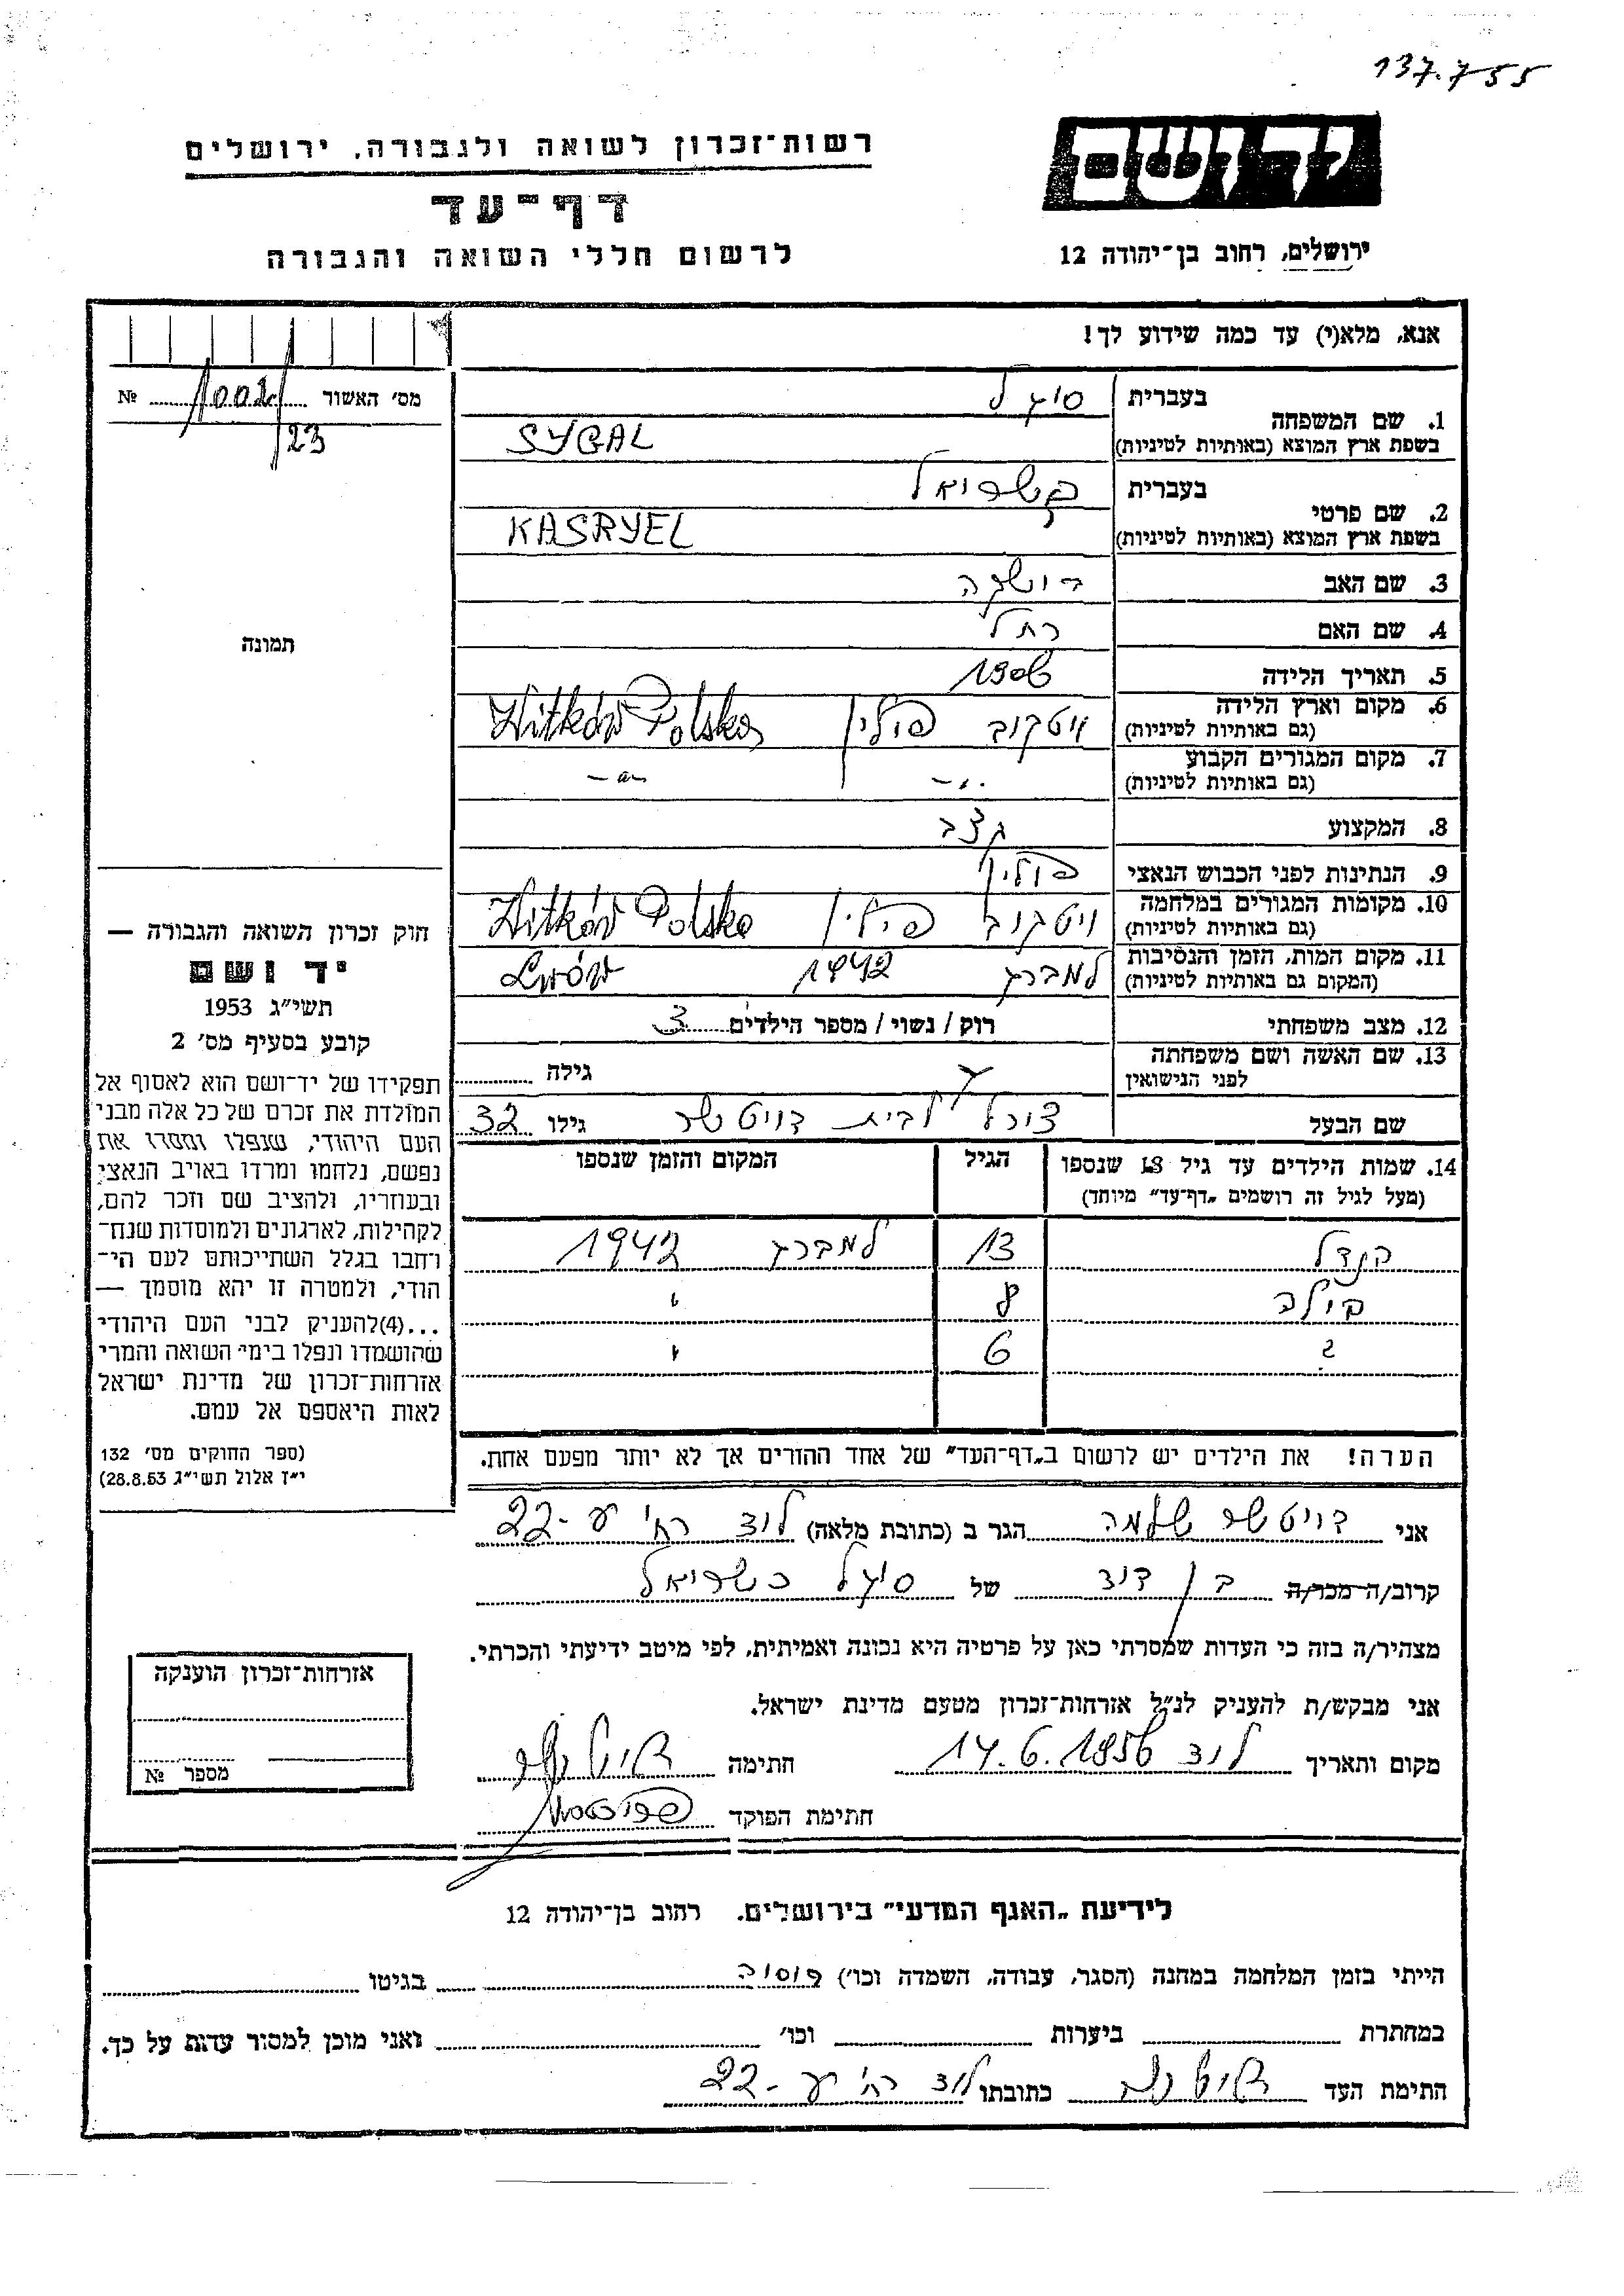 137.755
רשות־זכרון לשואה ולגבורה, ירושלים
יד ושם
דף־עד
לרשום חללי השואה והגבורה
ירושלים, רחוב בן־יהודה 12
אנא, מלא(י) עד כמה שידוע לך!
מס׳ האשור № 1002/
123
1. שם המשפחה
בעברית סיגל
בשפת ארץ המוצא (באותיות לטיניות) SYGAL
2. שם פרטי
בעברית כשריאל
בשפת ארץ המוצא (באותיות לטיניות) KASRYEL
3. שם האב
4. שם האם רחל
5. תאריך הלידה 1906
6. מקום וארץ הלידה ויטקוב פולין Witków Polska
(גם באותיות לטיניות)
7. מקום המגורים הקבוע -"- -"-
(גם באותיות לטיניות)
8. המקצוע קצב
9. הנתינות לפני הכבוש הנאצי פולין
10. מקומות המגורים במלחמה ויטקוב פולין Witków Polska
(גם באותיות לטיניות)
11. מקום המות, הזמן והנסיבות למברג 1942 Lwów
(המקום גם באותיות לטיניות)
12. מצב משפחתי רוק / נשוי / מספר הילדים 3
13. שם האשה ושם משפחתה
לפני הנישואין גילה
שם הבעל לבית דויטשר גילו 32
14. שמות הילדים עד גיל 18 שנספו הגיל המקום והזמן שנספו
(מעל לגיל זה רושמים „דף־עד״ מיוחד)
הנדל 13 למברג 1942
8 "
? 6 "
הערה! את הילדים יש לרשום ב„דף־העד״ של אחד ההורים אך לא יותר מפעם אחת.
תמונה
חוק זכרון השואה והגבורה —
יד ושם
תשי״ג 1953
קובע בסעיף מס׳ 2
תפקידו של יד־ושם הוא לאסוף אל
המולדת את זכרם של כל אלה מבני
העם היהודי, שנפלו ומסרו את
נפשם, נלחמו ומרדו באויב הנאצי
ובעוזריו, ולהציב שם וזכר להם,
לקהילות, לארגונים ולמוסדות שנח־
רחבו בגלל השתייכותם לעם הי־
הודי, ולמטרה זו יהא מוסמך —
...(4)להעניק לבני העם היהודי
שהושמדו ונפלו בימי השואה והמרי
אזרחות־זכרון של מדינת ישראל
לאות היאספם אל עמם.
(ספר החוקים מס׳ 132
י״ז אלול תשי״ג 28.8.53)
אני דויטשר שלמה הגר ב (כתובת מלאה) לוד רח׳ יע -22
קרוב/ה מכר/ה בן דוד של סיגל כשריאל
מצהיר/ה בזה כי העדות שמסרתי כאן על פרטיה היא נכונה ואמיתית, לפי מיטב ידיעתי והכרתי.
אני מבקש/ת להעניק לנ״ל אזרחות־זכרון מטעם מדינת ישראל.
מקום ותאריך לוד 14.6.1956 חתימה
חתימת הפוקד
אזרחות־זכרון הוענקה
מספר №
לידיעת „האגף המדעי״ בירושלים, רחוב בן־יהודה 12
הייתי בזמן המלחמה במחנה (הסגר, עבודה, השמדה וכו׳) רוסיה בגיטו
במחתרת ביערות וכו׳ ואני מוכן למסור עדות על כך.
חתימת העד כתובתו לוד רח׳ יע -22